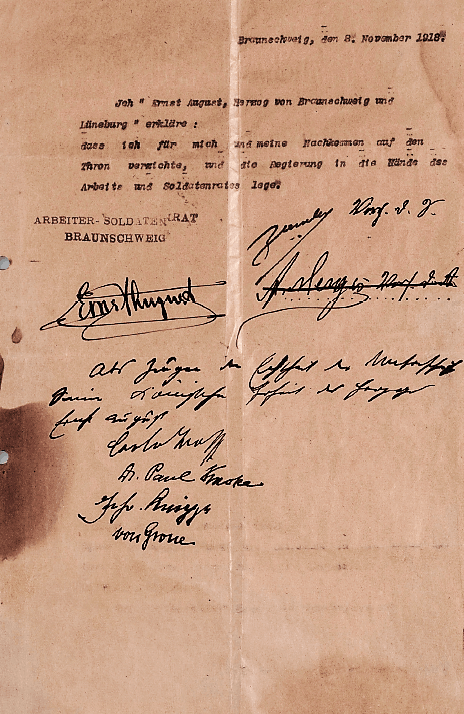 Braunschweig, den 8. November 1918.
Jch " Ernst August, Herzog von Braunschweig und
Lüneburg " erkläre :
dass ich für mich und meine Nachkommen auf den
Thron verzichte, und die Regierung in die Hände des
Arbeits und Soldatenrates lege.
ARBEITER-SOLDATENRAT
BRAUNSCHWEIG
Vors. d. S.
Ernst August
Vors. d. A
Als Zeugen der Echtheit der Unterschrift
Seiner Königlichen Hoheit des Herzogs
Ernst August
Dr. Paul
Frhr. Knigge
von Grone